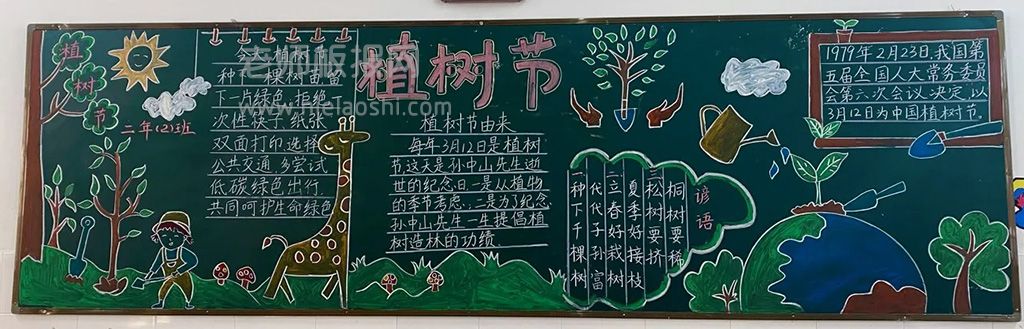 植
树
节
二年(2)班
今天植树节
种一棵树苗留
下一片绿色.拒绝
次性筷子 纸张
双面打印选择
公共交通.多尝试
低碳绿色出行.
共同呵护生命绿色
老师板报网
植树节
植树节由来
每年3月12日是植树
节这天是孙中山先生逝
世的纪念日.一是从植物
的季节考虑.二是为了纪念
孙中山先生一生提倡植
树造林的功绩
谚语
一种下千棵树
代代子孙富
二立春好栽树
夏季好接枝
三松树要挤
桐树要稀
1979年2月23日.我国第
五届全国人大常务委员
会第六次会议决定,以
3月12日为中国植树节。